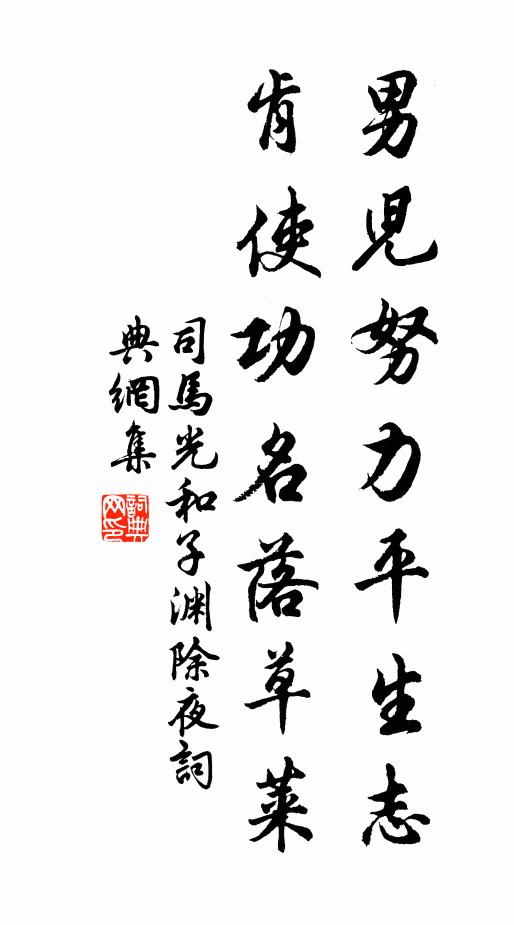 男児努力平生志
肯使功名落草萊
司馬光和子淵除夜詞
典網集
詞典網印